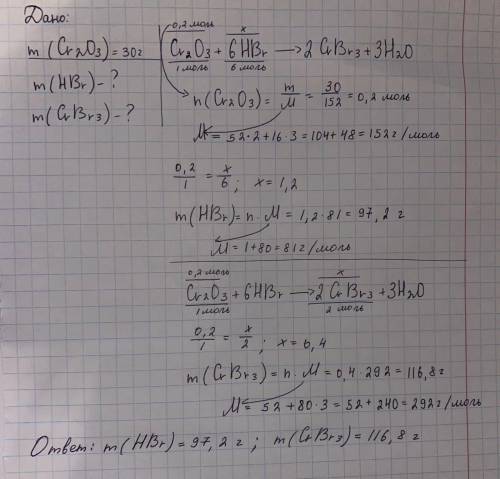 Дано:
m(Cr2O3)=30г
m(HBr)-?
m(CrBr3)-?
0,2 моль x
Cr2O3 + 6HBr → 2CrBr3 + 3H2O
1 моль 6 моль
n(Cr2O3) = m/M = 30/152 = 0,2 моль
M = 52·2+16·3=104+48=152г/моль
0,2/1 = x/6; x=1,2
m(HBr)=n·M = 1,2·81=97,2 г
M=1+80=81г/моль
0,2моль x
Cr2O3+6HBr → 2CrBr3+3H2O
1моль 2 моль
0,2/1 = x/2; x=0,4
m(CrBr3)=n·M=0,4·292=116,8г
M= 52+80·3=52+240=292г/моль
Ответ: m(HBr)=97,2 г; m(CrBr3)=116,8 г